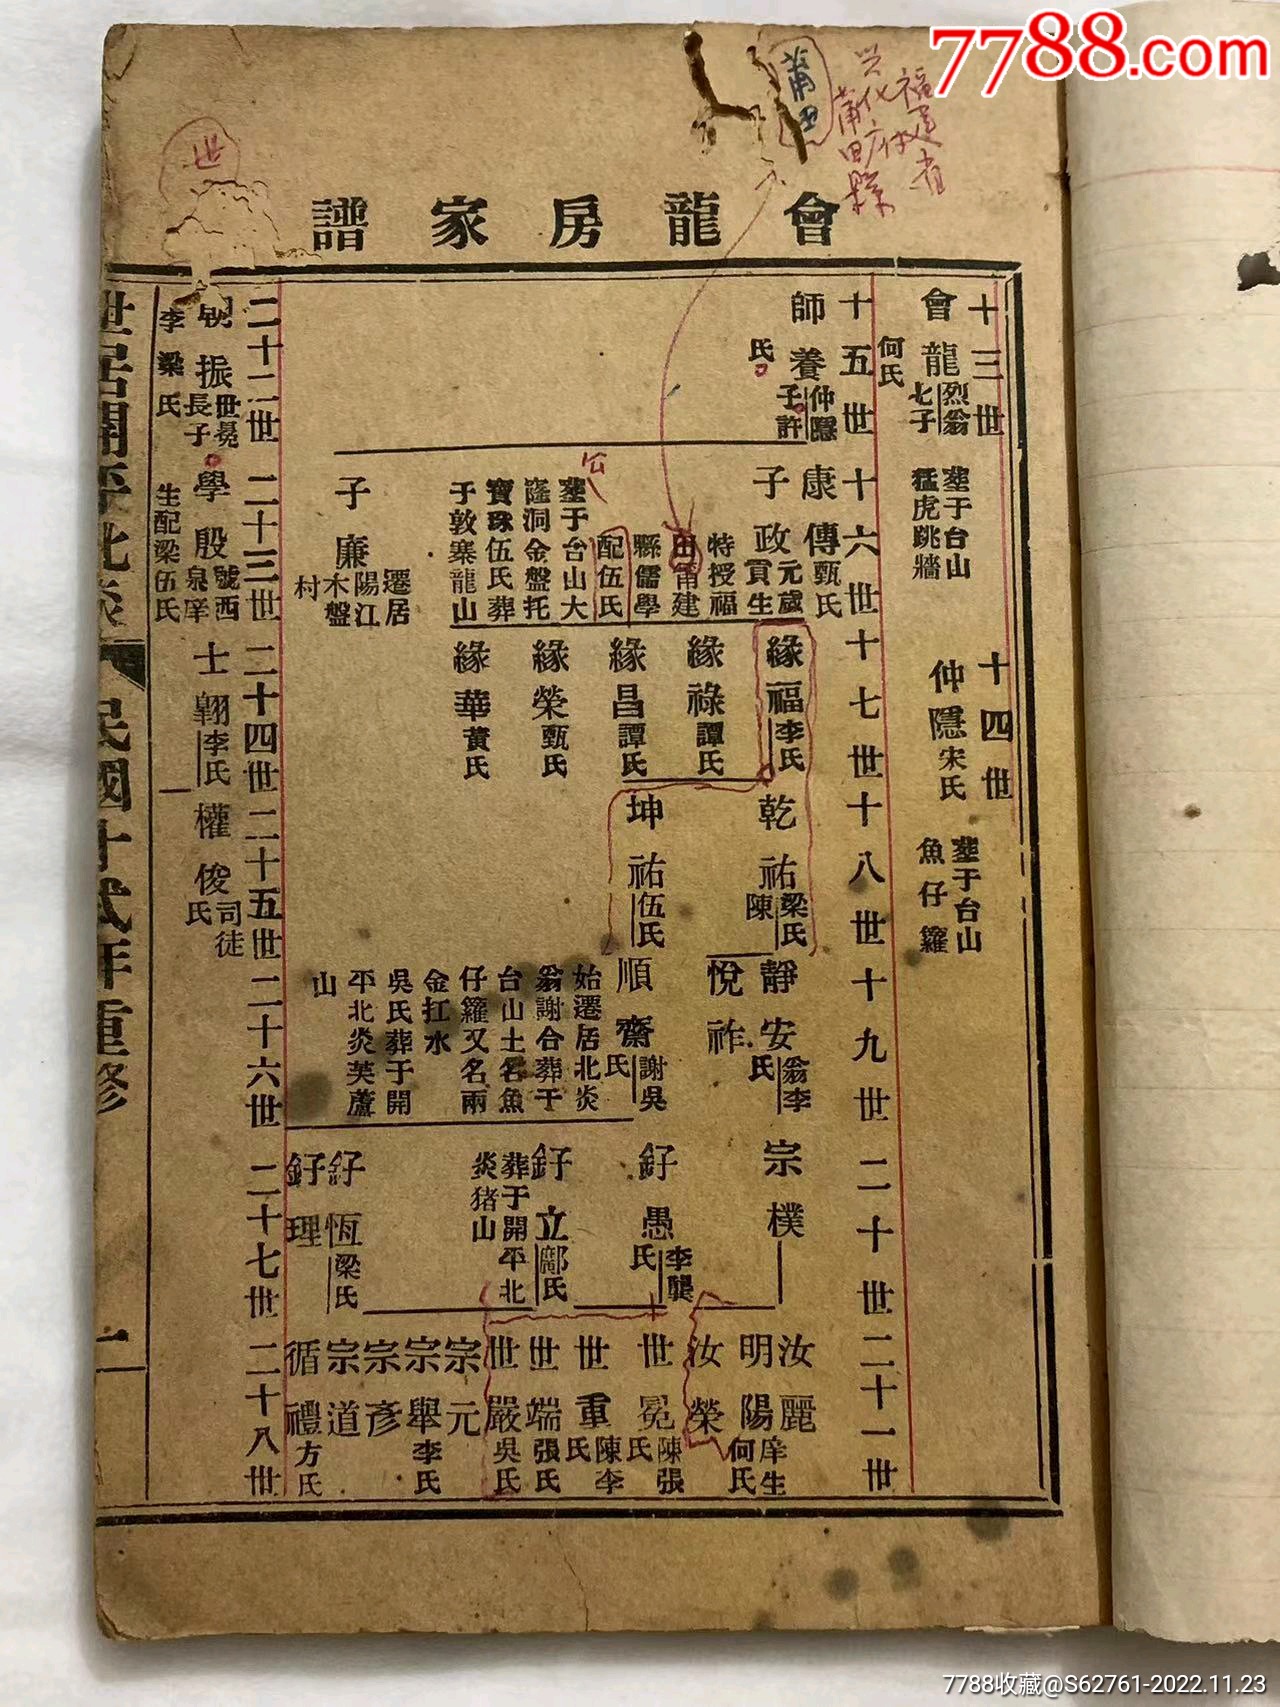 7788.com
福建省
兴化府
莆田縣
莆田
世
會龍房家譜
十三世
會龍
烈翁
七子
何氏
塟于台山
猛虎跳牆
十四世
仲隱宋氏
塟于台山
魚仔籮
十五世
師養
仲隱
子許
氏
十六世
康傳甄氏
子政
元歲
貢生
特授福
建莆田
縣儒學
配伍氏
公
塟于台山大
窿洞金盤托
寶珠伍氏葬
于敦寨龍山
子廉
遷居
陽江
木盤
村
十七世
緣福李氏
緣祿譚氏
緣昌譚氏
緣榮甄氏
緣華黃氏
十八世
乾祐
梁氏
陳
坤祐伍氏
十九世
靜安
翁李
氏
悅祚
順齋
謝吳
氏
始遷居北炎
翁謝合葬于
台山土名魚
仔籮又名兩
金扛水
吳氏葬于開
平北炎芙蘆
山
二十世
宗樸
釨愚
李龔
氏
釨立鄺氏
葬于開平北
炎猪山
釨恆梁氏
釨理
二十一世
汝麗
明陽
庠生
何氏
汝榮
世冕
陳張
氏
世重
陳李
氏
世端張氏
世嚴吳氏
宗元
宗舉李氏
宗彥
宗道
循禮方氏
二十二世
朝振
世冕
長子
李梁氏
二十三世
學殷
號西
泉庠
生配梁伍氏
二十四世
士翱李氏
二十五世
權俊
司徒
氏
二十六世
二十七世
二十八世
世居開平北炎
民國十弍年重修
二
7788收藏@S62761-2022.11.23